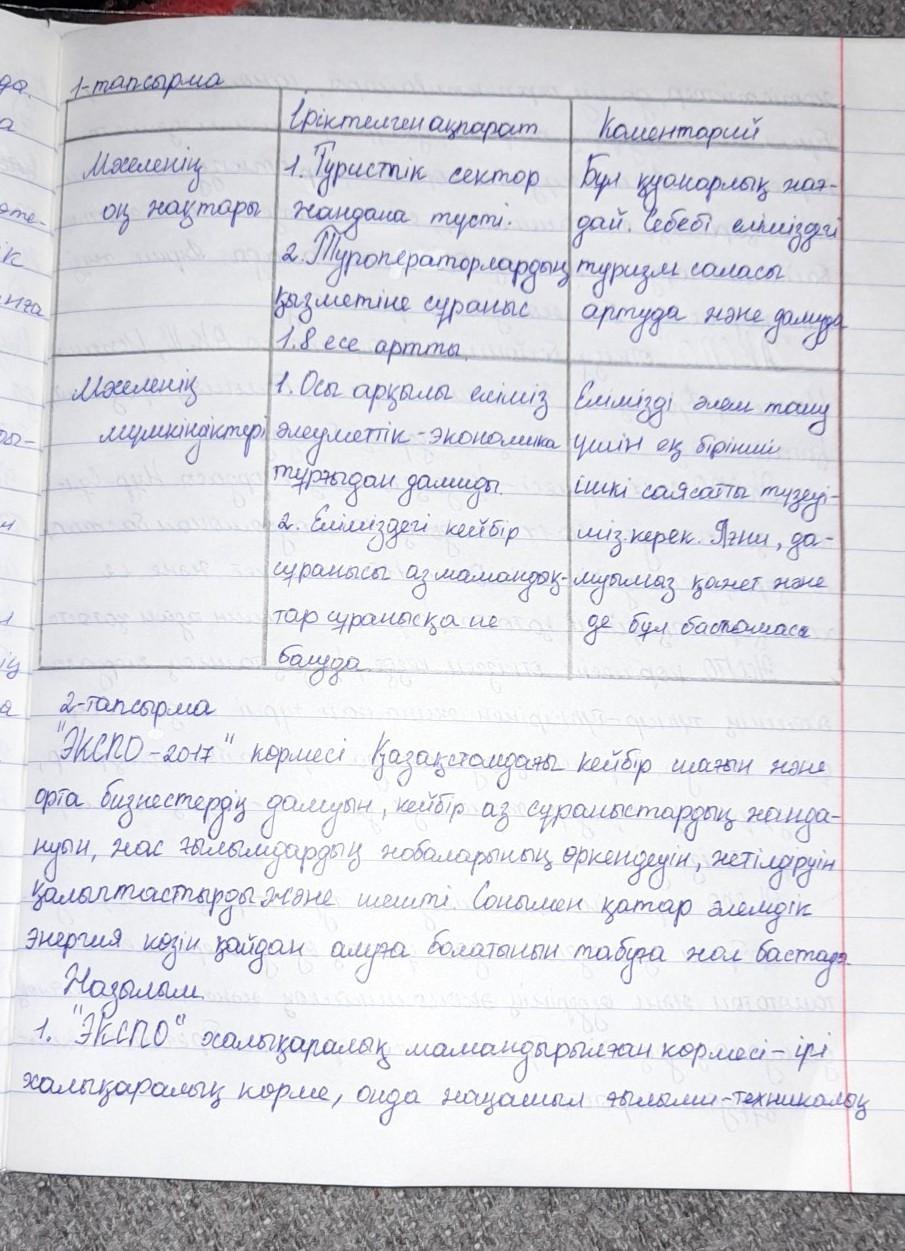 1-тапсырма
Іріктелген ақпарат
Коментарий
Мәселенің
оң жақтары
1. Туристік сектор
жандана түсті.
2. Туроператорлардың
қызметіне сұраныс
1.8 есе артты.
Бұл қуанарлық жағ-
дай. Себебі еліміздегі
туризм саласы
артуда және дамуда
Мәселенің
мүмкіндіктері
1. Осы арқылы еліміз
әлеуметтік-экономика
тұрғыдан дамиды.
2. Еліміздегі кейбір
сұранысы аз мамандық-
тар сұранысқа ие
болуда
Елімізді әлем тану
үшін ең бірінші
ішкі саясатты түзеуі-
міз керек. Яғни, да-
муымыз қажет және
де бұл бастамасы
2-тапсырма
"ЭКСПО-2017" көрмесі Қазақстандағы кейбір шағын және
орта бизнестердің дамуын, кейбір аз сұраныстардың жанда-
нуын, жас ғылымдардың жобаларының өркендеуін, жетілдіруін
қалыптастырды және шешті. Сонымен қатар әлемдік
энергия көзін қайдан алуға болатынын табуға жол бастады.
Жазылым
1. "ЭКСПО" халықаралық мамандырылған көрмесі – ірі
халықаралық көрме, онда жаңашыл ғылыми-техникалық